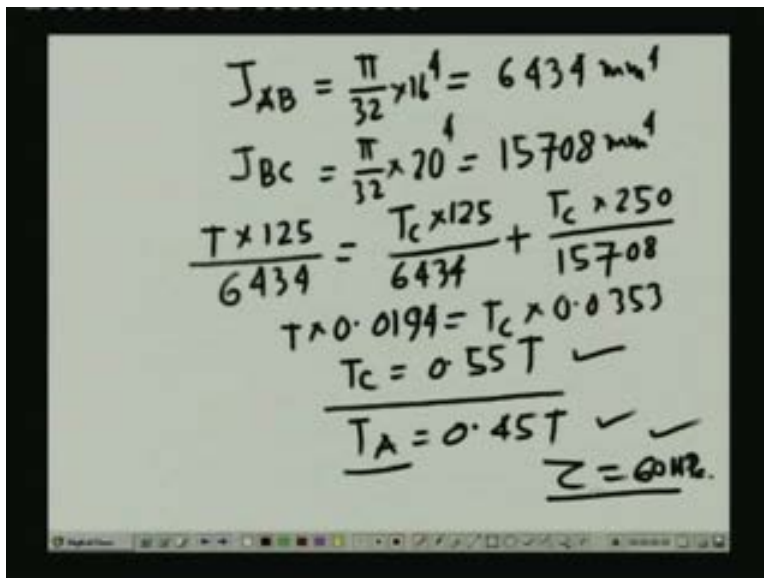 J_AB = π/32 × 16⁴ = 6434 mm⁴
J_BC = π/32 × 20⁴ = 15708 mm⁴
T × 125 / 6434 = T_C × 125 / 6434 + T_C × 250 / 15708
T × 0.0194 = T_C × 0.0353
T_C = 0.55 T ✓
T_A = 0.45 T ✓ ✓
τ = 60 MPa.